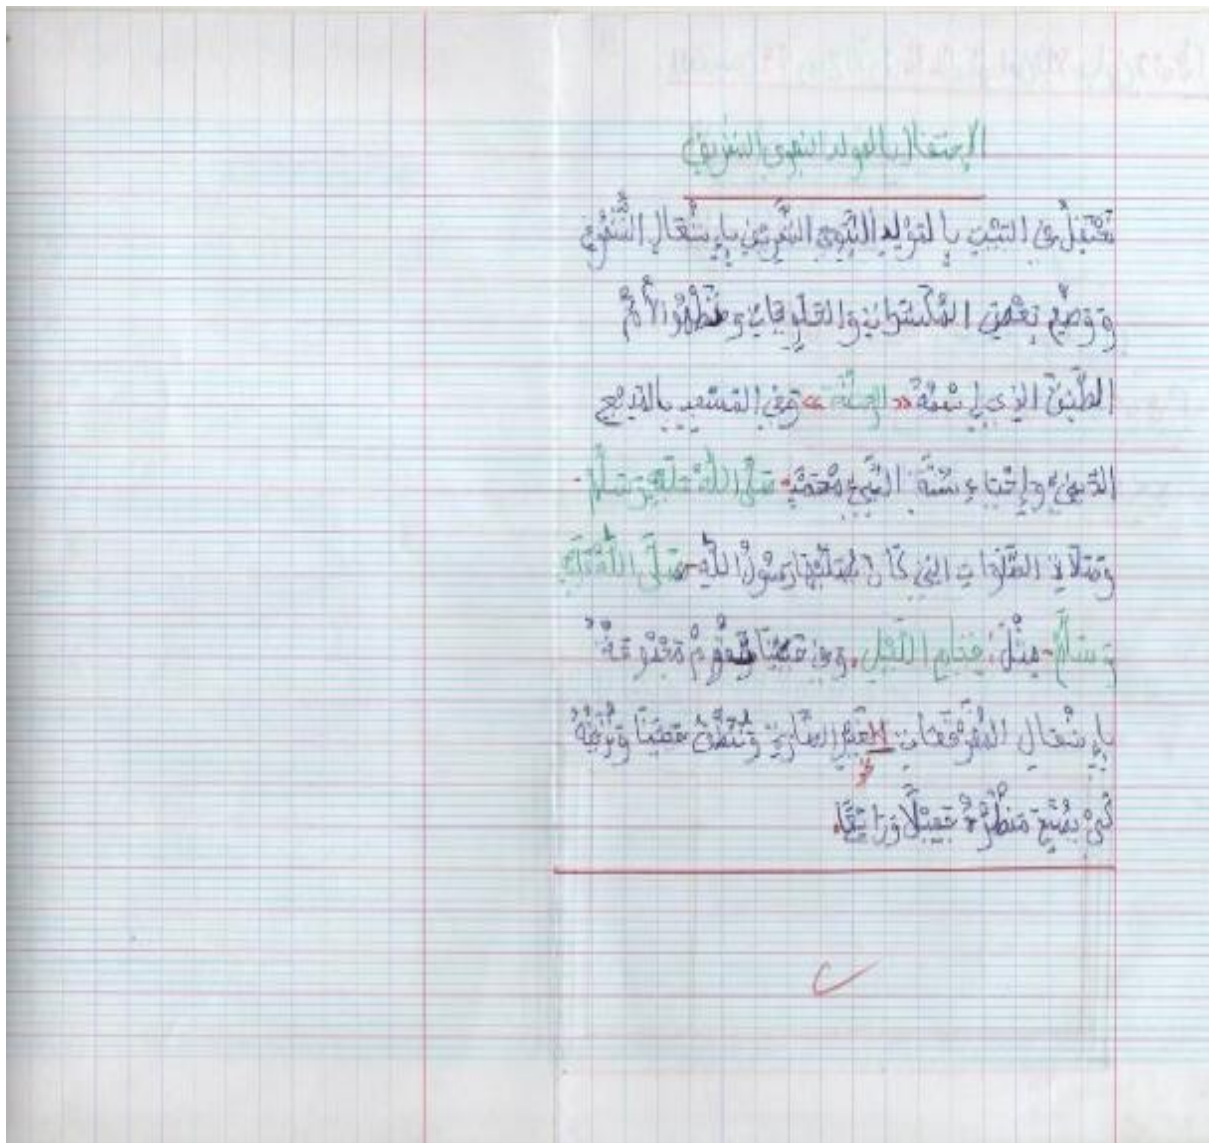 الإحتفال بالمولد النبوي الشريف
نَحْتَفِلُ فِي البَيْتِ بِالمَوْلِدِ النَّبَوِيِّ الشَّرِيفِ بِإِشْعَالِ الشُّمُوعِ
وَوَضْعِ بَعْضِ المُكَسَّرَاتِ وَالحَلَوِيَاتِ وَ الأُمُّ
الطَّبَقَ الذي إِسْمُهُ « » وَفِي المَسْجِدِ بِالمَدِيحِ
الدِّينِيِّ وإِحْيَاءِ سُنَّةِ النَّبِيِّ مُحَمَّدٍ - صَلَّى اللَّهُ عَلَيْهِ وَسَلَّمَ -
وَصَلَاةِ الصَّلَوَاتِ التِي كَانَ يُصَلِّيهَا رَسُولُ اللَّهِ - صَلَّى اللَّهُ عَلَيْهِ
وَسَلَّمَ - مِثْلَ: قِيَامِ اللَّيْلِ. وَفِي حَيِّنَا تَقُومُ مَجْمُوعَةٌ
بِإِشْعَالِ المُفَرْقَعَاتِ الغَيْرِ الضَّارَةِ وَنُنَظِّفُ حَيَّنَا وَنُزَيِّنُهُ
كَيْ يُصْبِحَ مَنْظَرُهُ جَمِيلًا وَرَائِعًا.